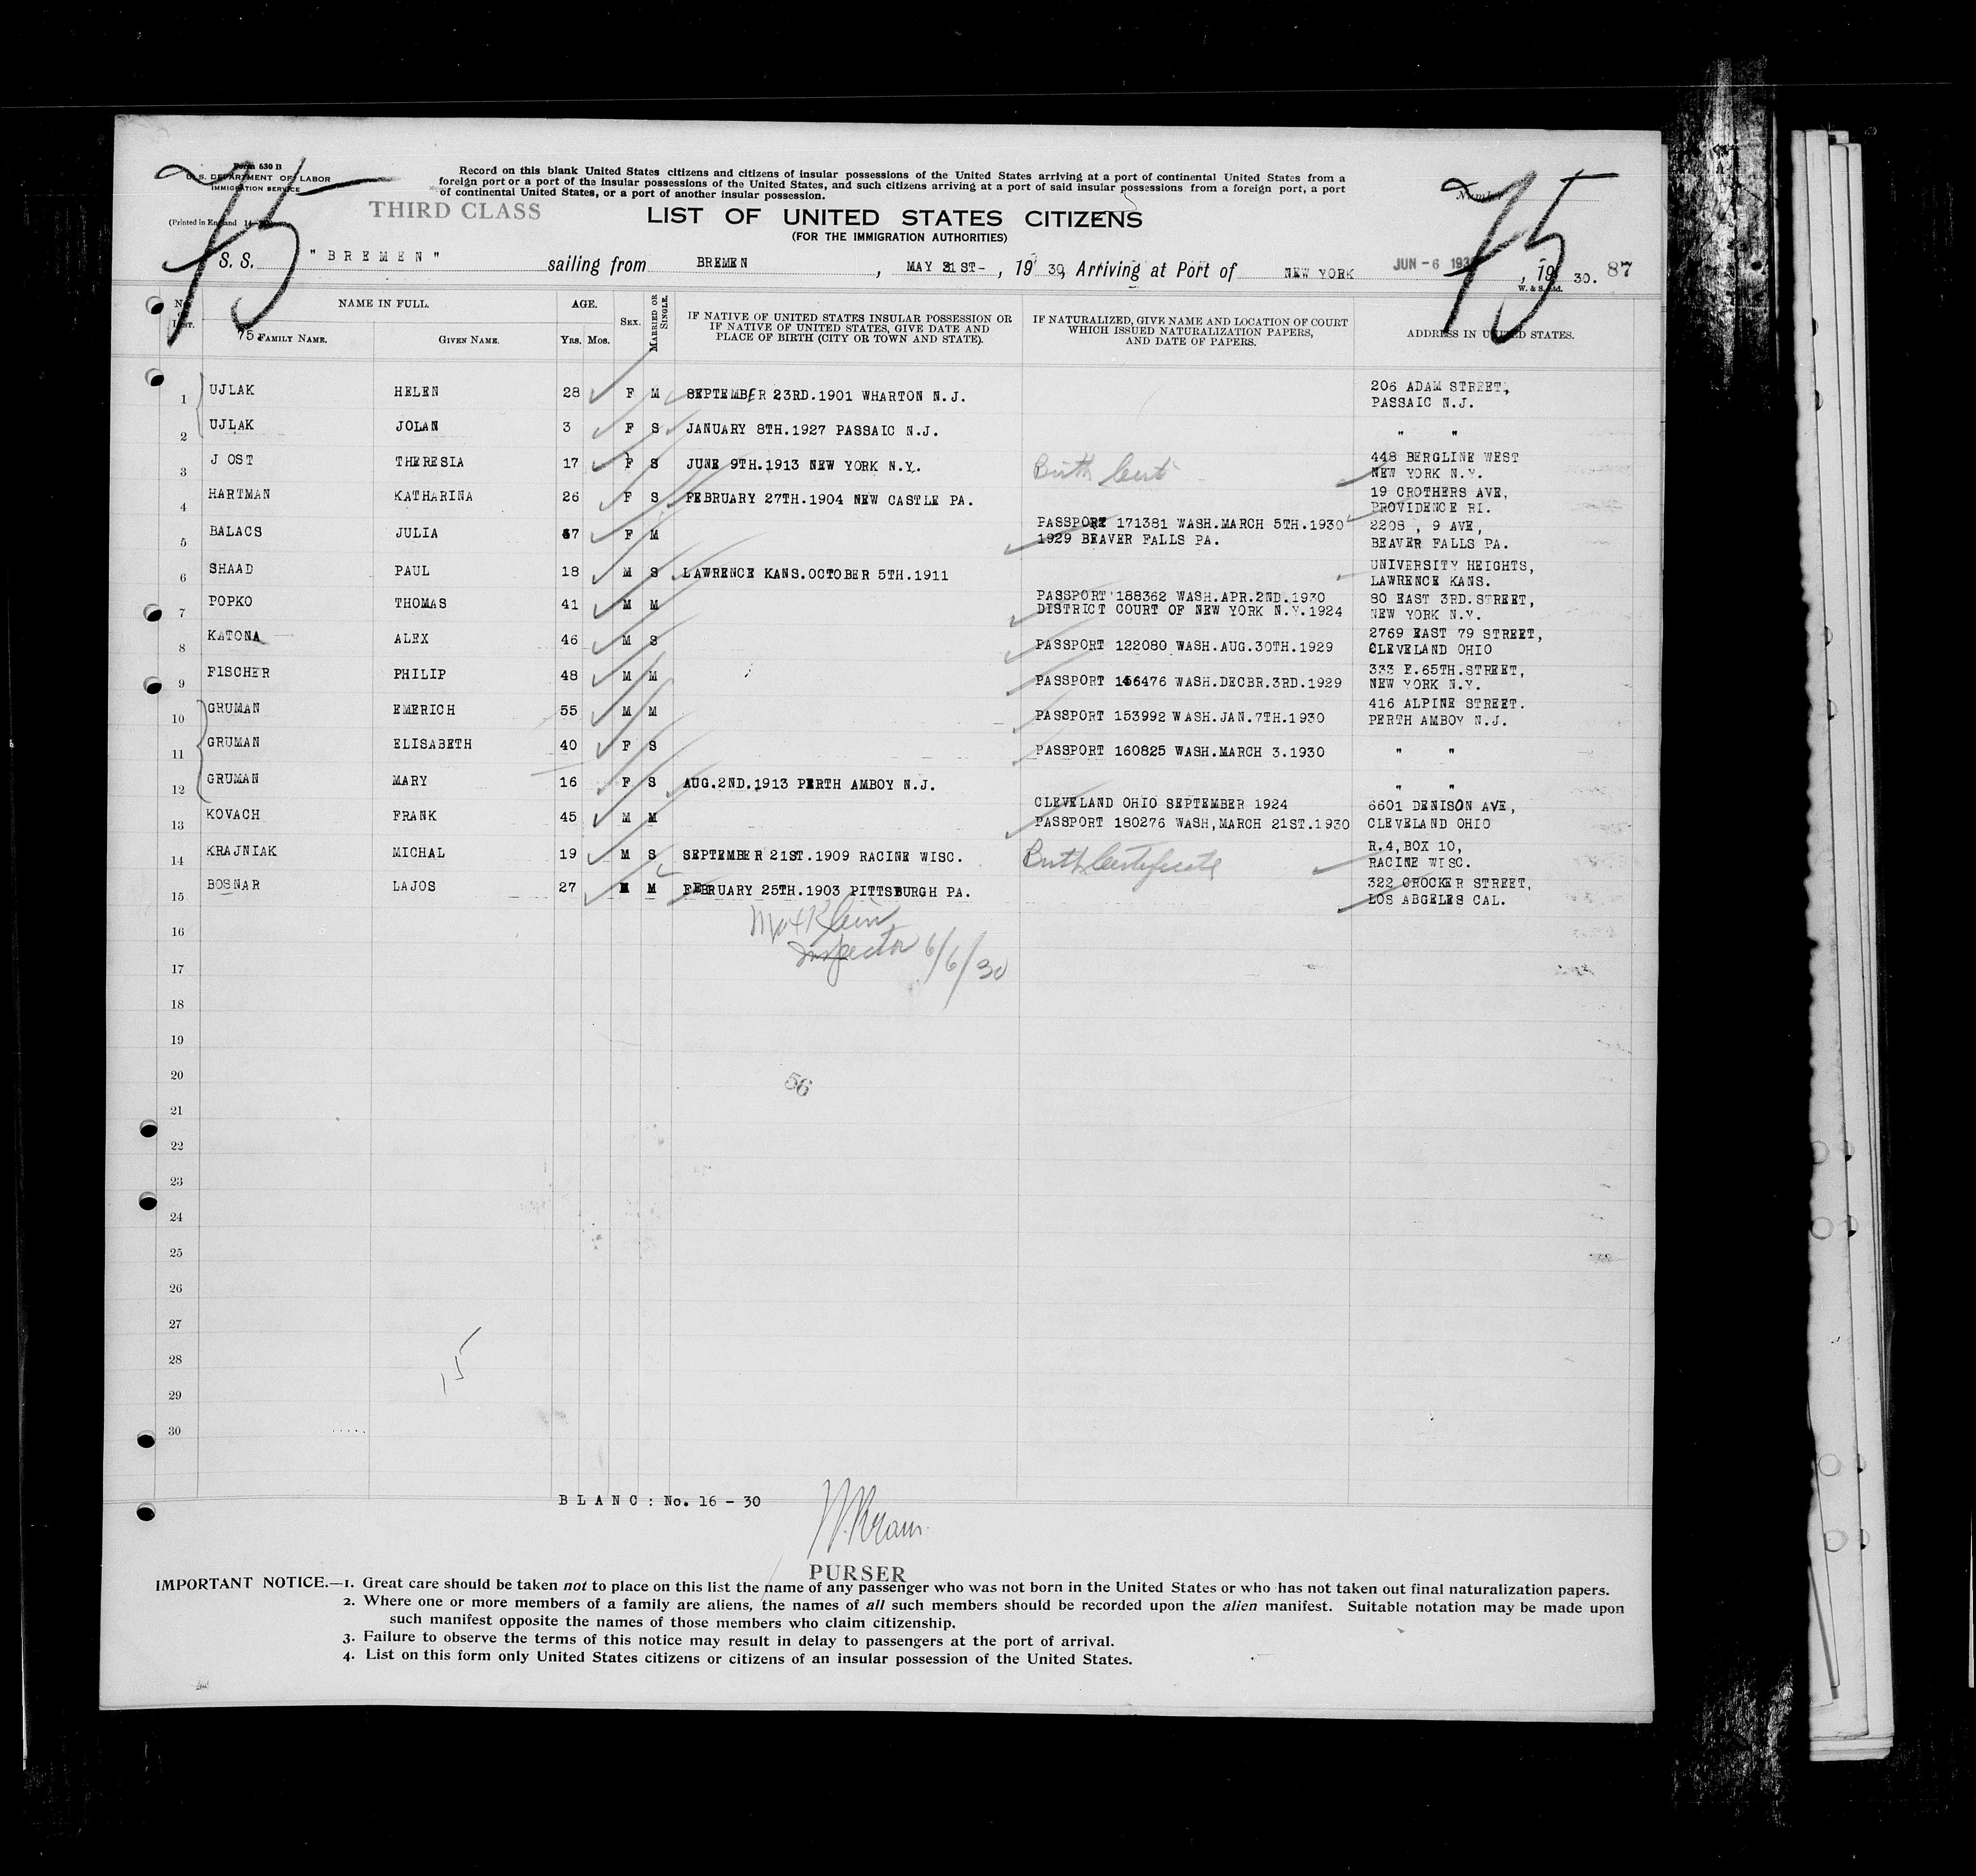 Form 630 B
U. S. DEPARTMENT OF LABOR
IMMIGRATION SERVICE
(Printed in England
Record on this blank United States citizens and citizens of insular possessions of the United States arriving at a port of continental United States from a
foreign port or a port of the insular possessions of the United States, and such citizens arriving at a port of said insular possessions from a foreign port, a port
of continental United States, or a port of another insular possession.
75
75
THIRD CLASS
LIST OF UNITED STATES CITIZENS
(FOR THE IMMIGRATION AUTHORITIES)
S. S. "BREMEN" sailing from BREMEN, MAY 31ST-, 19 30, Arriving at Port of NEW YORK JUN -6 193, 19 30. 87
W. & S. Ltd.
No. LIST. NAME IN FULL. AGE. SEX. MARRIED OR SINGLE. IF NATIVE OF UNITED STATES INSULAR POSSESSION OR IF NATIVE OF UNITED STATES, GIVE DATE AND PLACE OF BIRTH (CITY OR TOWN AND STATE). IF NATURALIZED, GIVE NAME AND LOCATION OF COURT WHICH ISSUED NATURALIZATION PAPERS, AND DATE OF PAPERS. ADDRESS IN UNITED STATES.
75 FAMILY NAME. GIVEN NAME. YRS. MOS.
1 UJLAK HELEN 28 F M SEPTEMBER 23RD.1901 WHARTON N.J. 206 ADAM STREET, PASSAIC N.J.
2 UJLAK JOLAN 3 F S JANUARY 8TH.1927 PASSAIC N.J. " "
3 J OST THERESIA 17 F S JUNE 9TH.1913 NEW YORK N.Y. Birth Cert 448 BERGLINE WEST NEW YORK N.Y.
4 HARTMAN KATHARINA 26 F S FEBRUARY 27TH.1904 NEW CASTLE PA. 19 CROTHERS AVE, PROVIDENCE RI.
5 BALACS JULIA 37 F M PASSPORT 171381 WASH.MARCH 5TH.1930 1929 BEAVER FALLS PA. 2208 , 9 AVE, BEAVER FALLS PA.
6 SHAAD PAUL 18 M S LAWRENCE KANS.OCTOBER 5TH.1911 UNIVERSITY HEIGHTS, LAWRENCE KANS.
7 POPKO THOMAS 41 M M PASSPORT 188362 WASH.APR.2ND.1930 DISTRICT COURT OF NEW YORK N.Y.1924 80 EAST 3RD.STREET, NEW YORK N.Y.
8 KATONA ALEX 46 M S PASSPORT 122080 WASH.AUG.30TH.1929 2769 EAST 79 STREET, CLEVELAND OHIO
9 FISCHER PHILIP 48 M M PASSPORT 146476 WASH.DECBR.3RD.1929 333 E.65TH.STREET, NEW YORK N.Y.
10 GRUMAN EMERICH 55 M M PASSPORT 153992 WASH.JAN.7TH.1930 416 ALPINE STREET. PERTH AMBOY N.J.
11 GRUMAN ELISABETH 40 F S PASSPORT 160825 WASH.MARCH 3.1930 " "
12 GRUMAN MARY 16 F S AUG.2ND.1913 PERTH AMBOY N.J. " "
13 KOVACH FRANK 45 M M CLEVELAND OHIO SEPTEMBER 1924 PASSPORT 180276 WASH,MARCH 21ST.1930 6601 DENISON AVE, CLEVELAND OHIO
14 KRAJNIAK MICHAL 19 M S SEPTEMBER 21ST.1909 RACINE WISC. Birth Certificate R.4,BOX 10, RACINE WISC.
15 BOSNAR LAJOS 27 M M FEBRUARY 25TH.1903 PITTSBURGH PA. 322 CROCKER STREET, LOS ABGELES CAL.
16
Klein
Inspector 6/6/30
17
18
19
20
56
21
22
23
24
25
26
27
28
15
29
30
BLANC: No. 16 - 30
PURSER
IMPORTANT NOTICE.—1. Great care should be taken not to place on this list the name of any passenger who was not born in the United States or who has not taken out final naturalization papers.
2. Where one or more members of a family are aliens, the names of all such members should be recorded upon the alien manifest. Suitable notation may be made upon
such manifest opposite the names of those members who claim citizenship.
3. Failure to observe the terms of this notice may result in delay to passengers at the port of arrival.
4. List on this form only United States citizens or citizens of an insular possession of the United States.